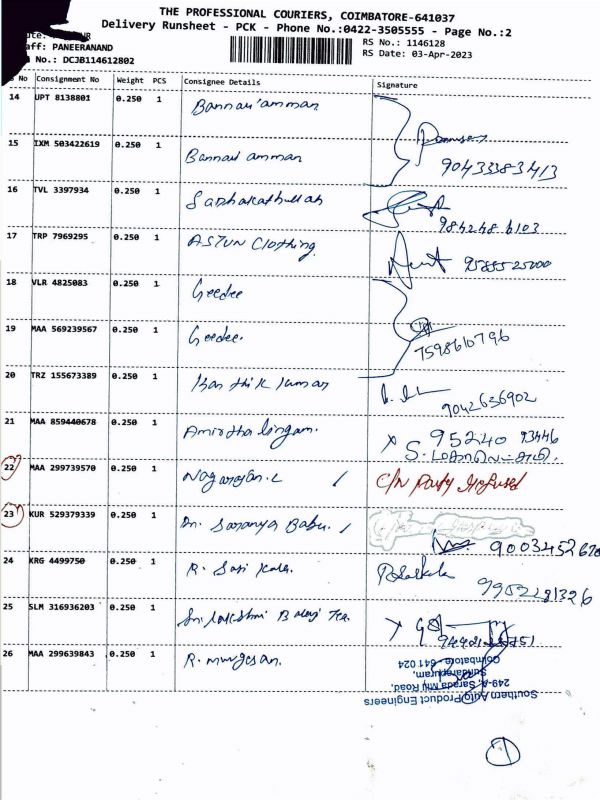 THE PROFESSIONAL COURIERS, COIMBATORE-641037
Delivery Runsheet - PCK - Phone No.:0422-3505555 - Page No.:2
RS No.: 1146128
aff: PANEERANAND
RS Date: 03-Apr-2023
No.: DCJB114612802
No Consignment No Weight PCS Consignee Details Signature
14 UPT 8138801 0.250 1 Bannari amman
15 IXM 503422619 0.250 1 Bannari amman 90433383413
16 TVL 3397934 0.250 1 Sadhakathullah
17 TRP 7969295 0.250 1 ASTUN Clothing. 9585525000
18 VLR 4825083 0.250 1 Geedee
19 MAA 569239567 0.250 1 Geedee. 7598610796
20 TRZ 155673389 0.250 1 Karthik kumar 9042636902
21 MAA 859440678 0.250 1 Amirthalingam. x 95240 93446
22 MAA 299739570 0.250 1 Nagarajan.L / C/N Party Refused
23 KUR 529379339 0.250 1 Dr. Saranya Babu. /
24 KRG 4499750 0.250 1 R. Sasi kala.
25 SLM 316936203 0.250 1 Sri Lakshmi Balaji Tex.
26 MAA 299639843 0.250 1 R. Murgesan.
Southern Auto Product Engineers
249-A, Sarada Mill Road,
Sundarapuram,
Coimbatore - 641 024
1